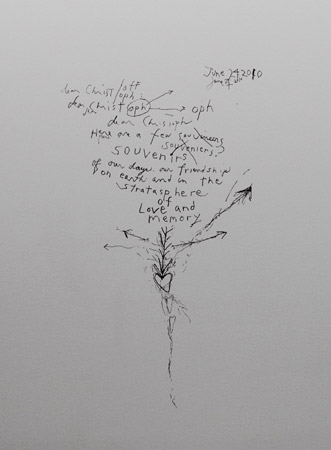 June 24 2010
June 24
dear Christ/off
oph:
dear Christ oph → oph
dear Christoph
Here are a few souveneers
souveniers?
SOUVENIRS
of our days our friendship
on earth and in the
stratasphere
of
Love and
memory